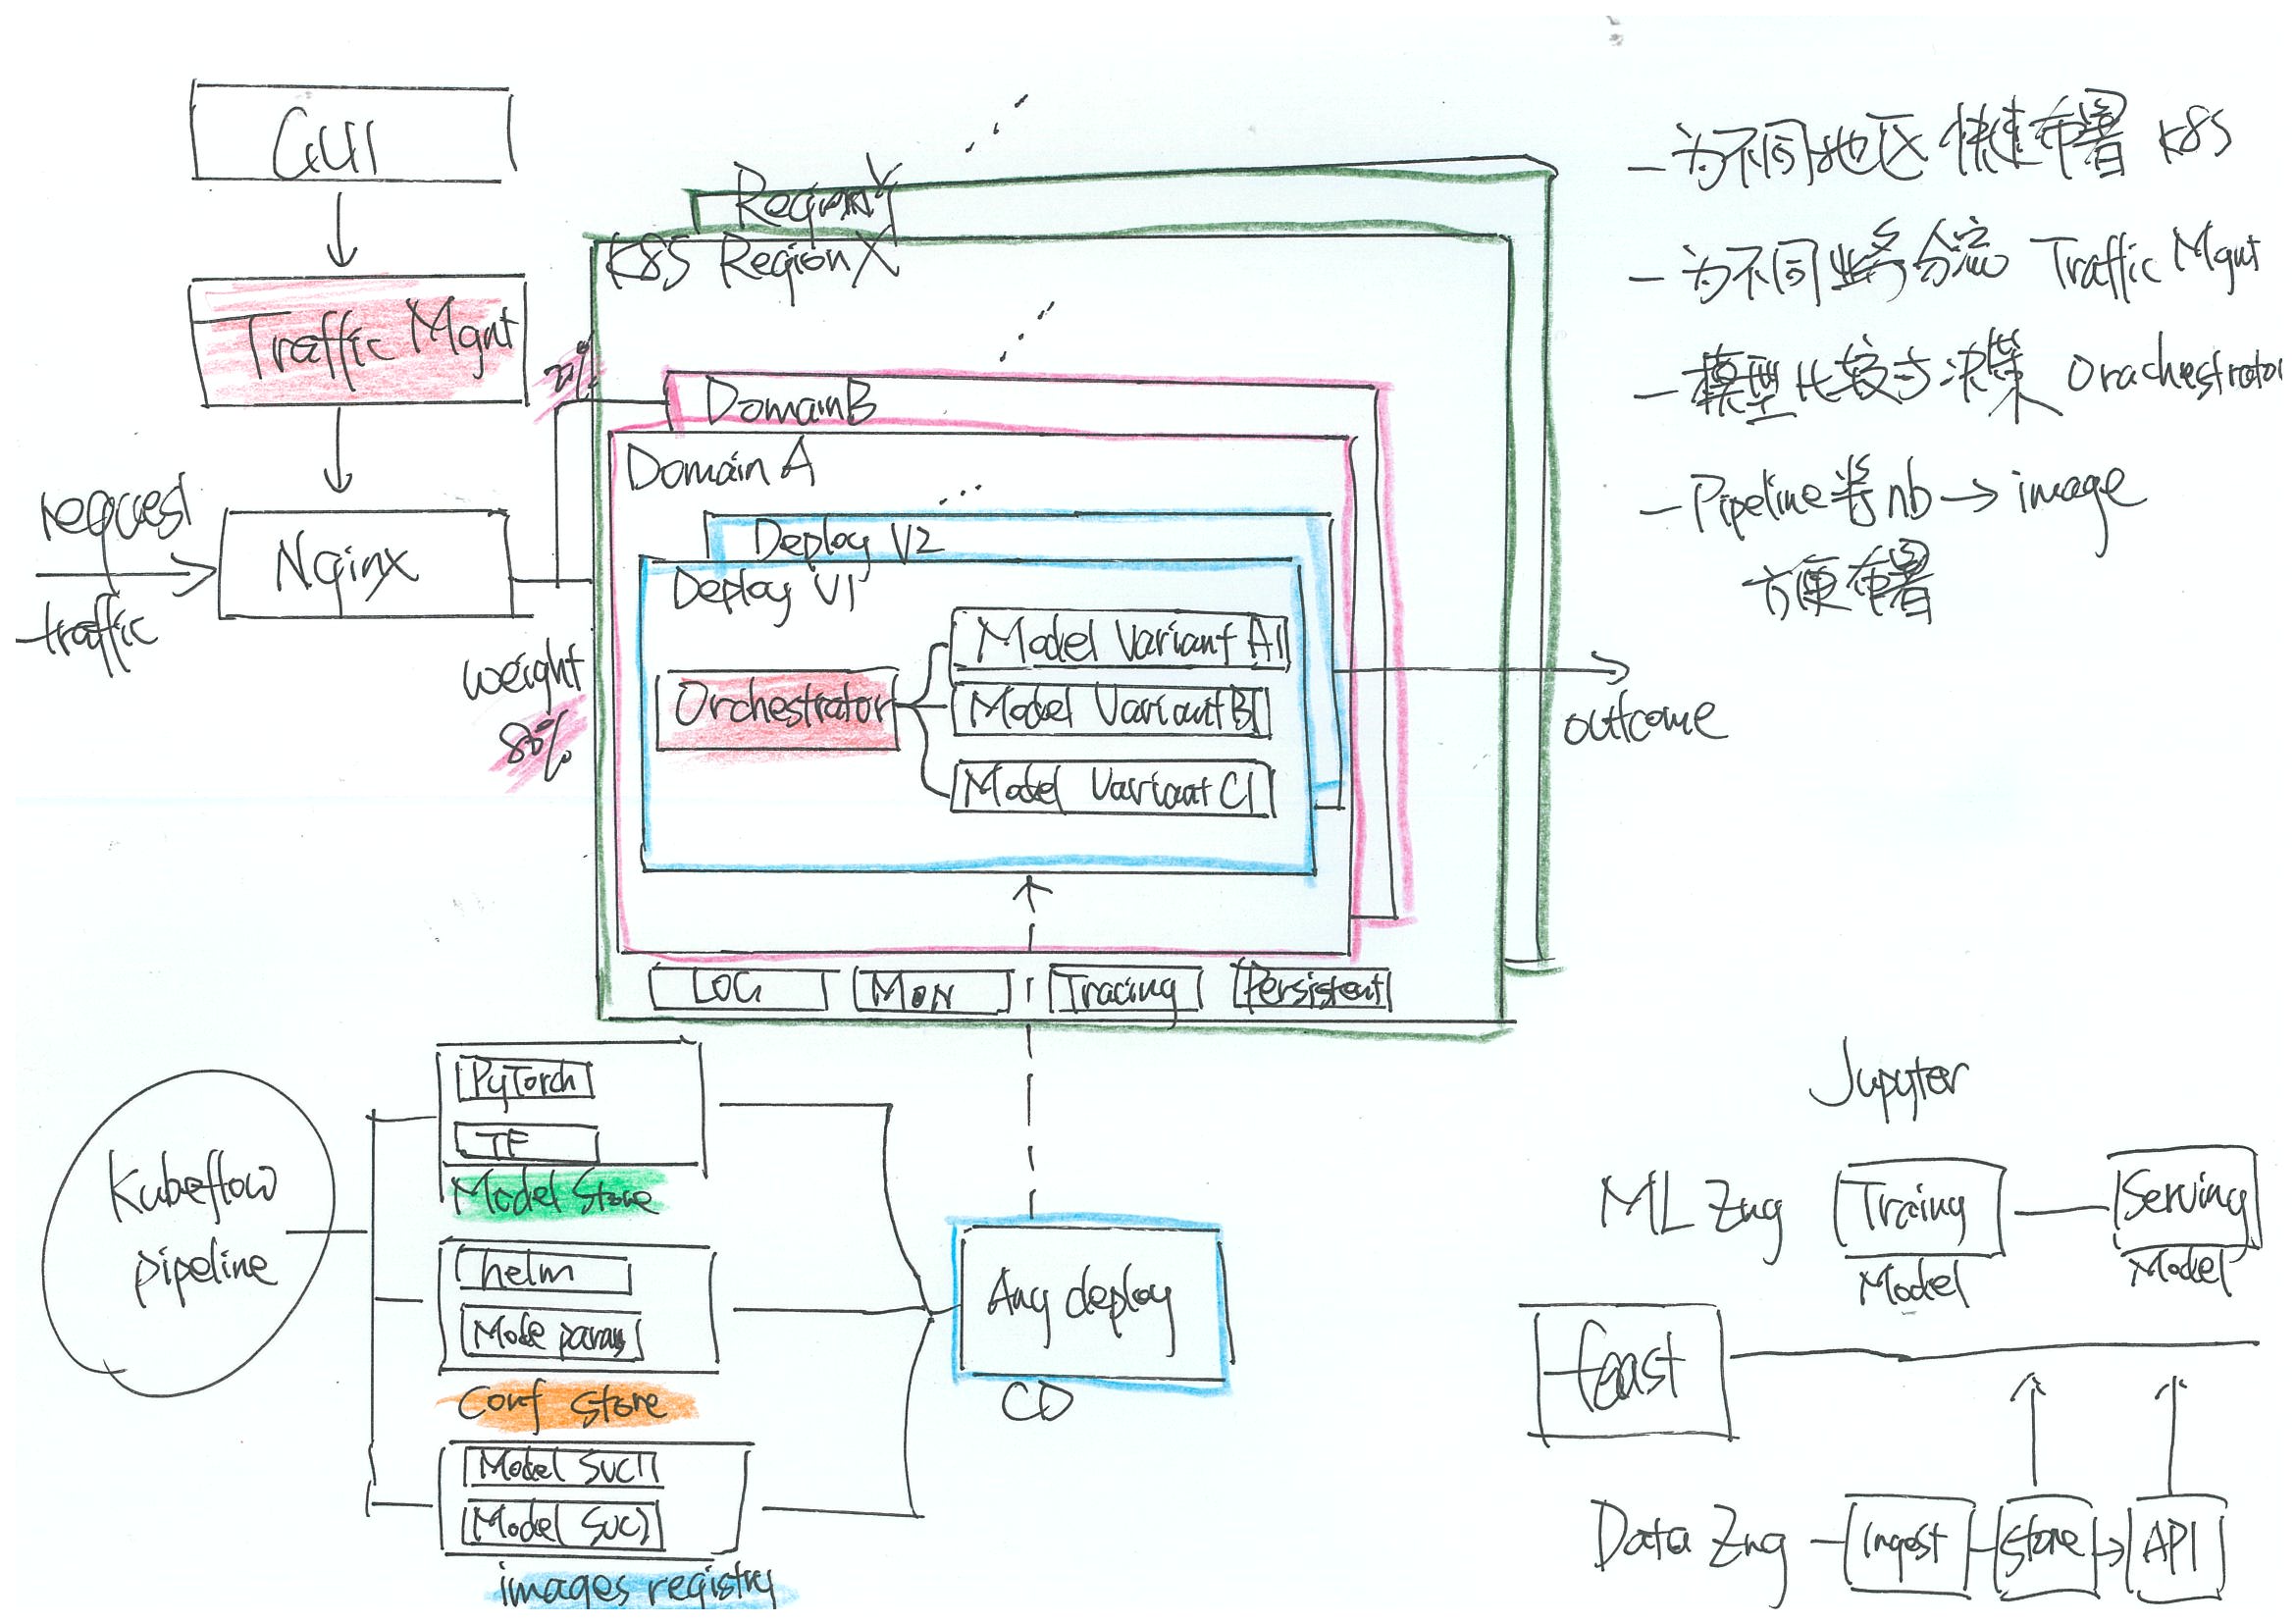 GUI
Traffic Mgnt
request
traffic
Nginx
weight
80%
Region Y
K8S Region X
Domain B
Domain A
Deploy V2
Deploy V1
Orchestrator
Model Variant A1
Model Variant B1
Model Variant C1
outcome
LOG
MON
Tracing
Persistent
- 为不同地区快速布署 K8S
- 为不同业务分流 Traffic Mgnt
- 模型比较与决策 Orachestrator
- Pipeline 将 nb → image
方便布署
Kubeflow
pipeline
PyTorch
TF
Model Store
helm
Mode param
Conf Store
Model Svc1
Model Svc2
images registry
Any deploy
CD
Jupyter
ML Eng
Traing
Model
Serving
Model
feast
Data Eng
Ingest
Store
API